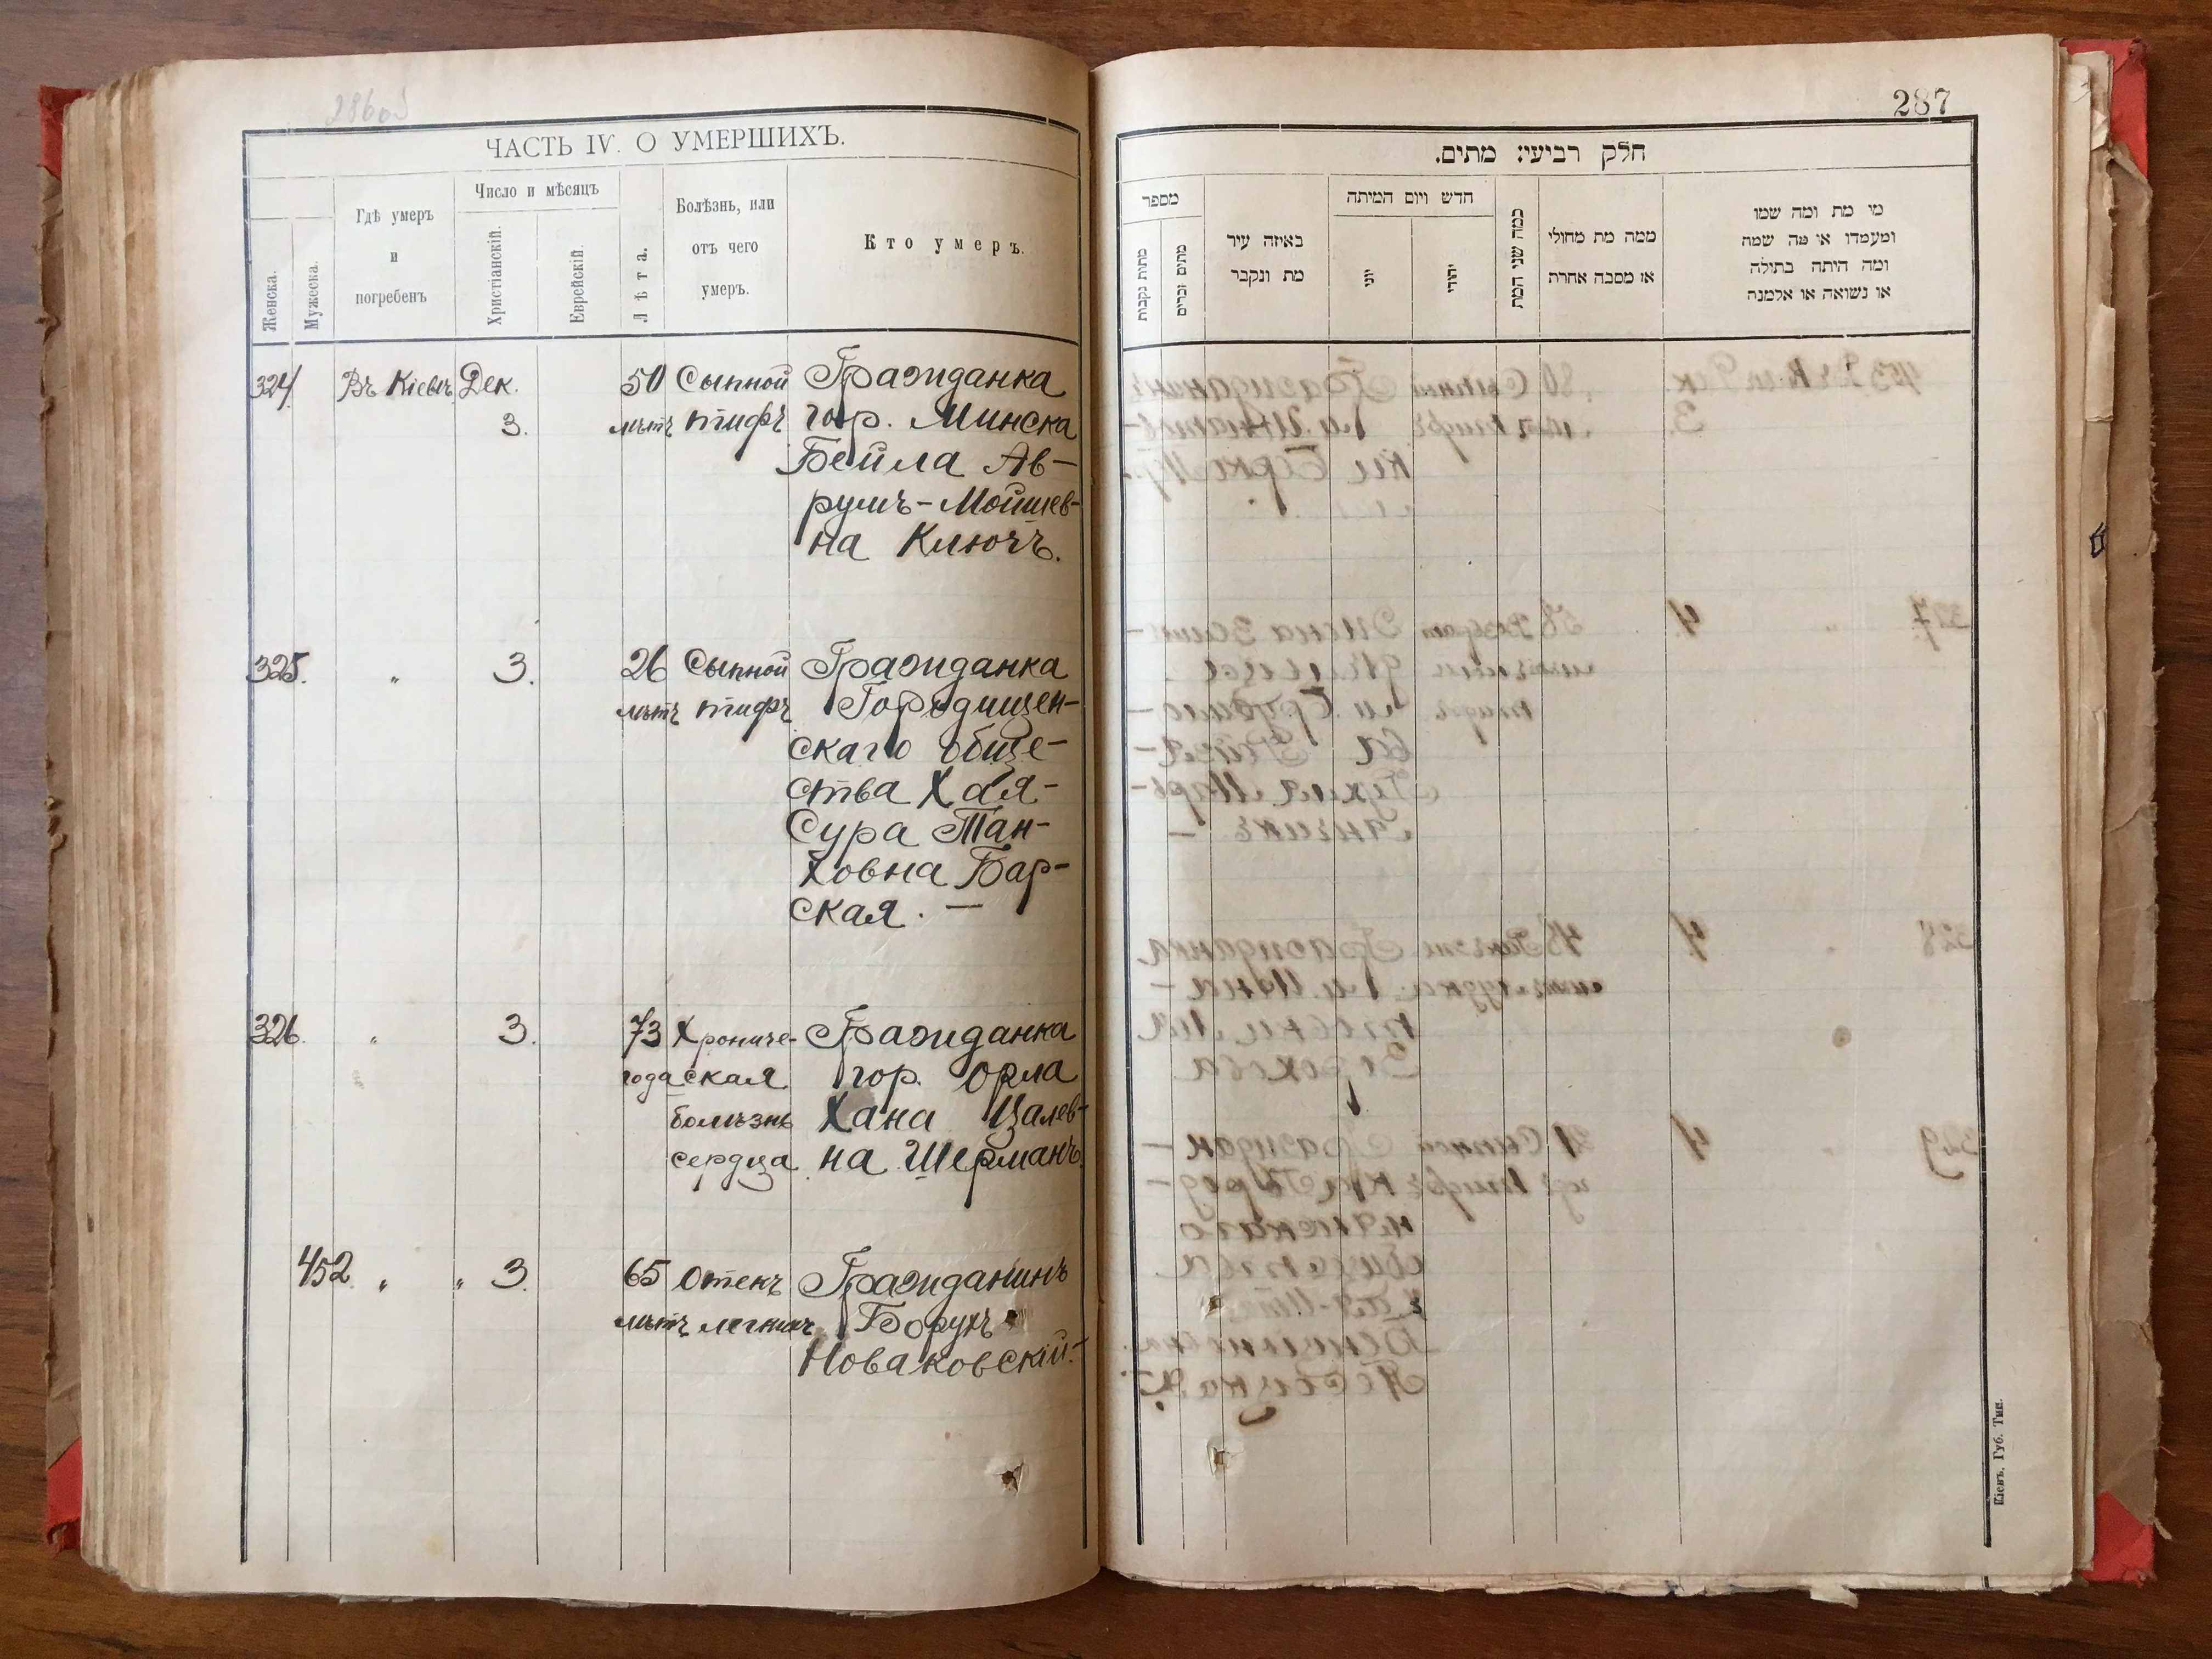 286об
ЧАСТЬ IV. О УМЕРШИХЪ.
Женска.
Мужеска.
Гдѣ умеръ
и
погребенъ
Число и мѣсяцъ
Христіанскій.
Еврейскій.
Лѣта.
Болѣзнь, или
отъ чего
умеръ.
Кто умеръ.
324 Въ Кіевѣ Дек. 50 Сыпной Гражданка
3. лѣтъ тифъ гор. Минска
Бейла Ав-
румъ-Мойшев-
на Ключъ.
325. " 3. 26 Сыпной Гражданка
лѣтъ тифъ Городищен-
скаго обще-
ства Хая-
Сура Тан-
ховна Бар-
ская. —
326. " 3. 73 Хрониче- Гражданка
года ская гор. Орла
болѣзнь Хана Цалев-
сердца на Шерманъ.
452 " " 3. 65 Отекъ Гражданинъ
лѣтъ легкихъ Борухъ
Новаковскій.-
287
חלק רביעי: מתים.
מספר
מתות נקבות
מתים זכרים
באיזה עיר
מת ונקבר
חדש ויום המיתה
יוני
יהודי
כמה שני המת
ממה מת מחולי
או מסבה אחרת
מי מת ומה שמו
ומעמדו או מה שמה
ומה היתה בתולה
או נשואה או אלמנה
Кіевъ. Губ. Тип.